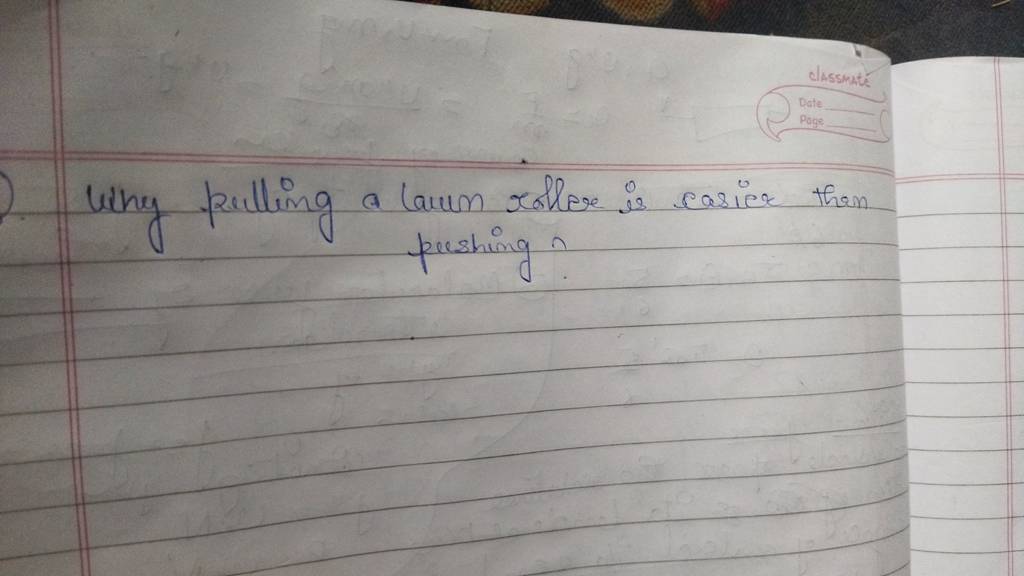 classmate
Date
Page
Why pulling a lawn roller is easier then
pushing ?